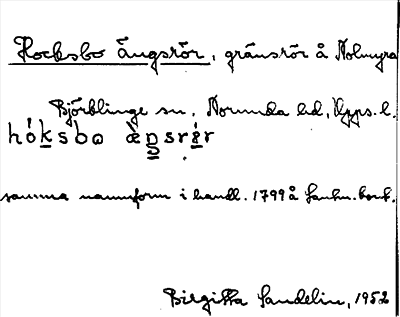 Hocksbo Ängsrör, gränsrör å Nolmyra
Björklinge sn, Norunda hd, Upps. l.
hóksbo ằŋsrø̣r
samma namnform i handl. 1799 å Lantm.kont.
Birgitta Sandelin, 1952